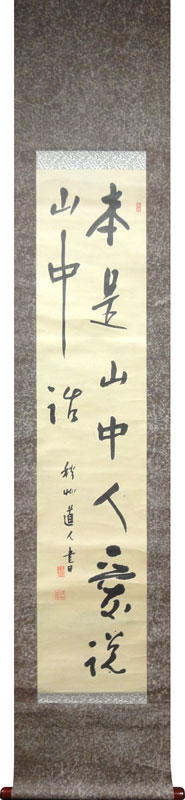 本是山中人愛説
山中話
道人書